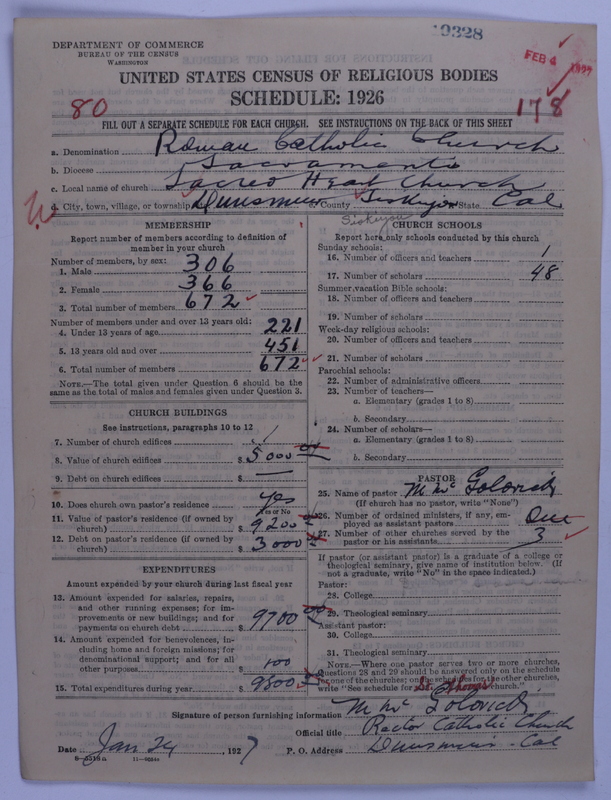 DEPARTMENT OF COMMERCE
BUREAU OF THE CENSUS
WASHINGTON
19328
FEB 4 1927
UNITED STATES CENSUS OF RELIGIOUS BODIES
SCHEDULE: 1926
80
178
FILL OUT A SEPARATE SCHEDULE FOR EACH CHURCH. SEE INSTRUCTIONS ON THE BACK OF THIS SHEET
a. Denomination Roman Catholic Church
b. Diocese Sacramento
c. Local name of church Sacred Heart Church
d. City, town, village, or township Dunsmuir e. County Siskiyou State Cal
Siskiyou
MEMBERSHIP
Report number of members according to definition of
member in your church
Number of members, by sex:
1. Male 306
2. Female 366
3. Total number of members 672
Number of members under and over 13 years old:
4. Under 13 years of age 221
5. 13 years old and over 451
6. Total number of members 672
NOTE.—The total given under Question 6 should be the
same as the total of males and females given under Question 3.
CHURCH BUILDINGS
See instructions, paragraphs 10 to 12
7. Number of church edifices 1
8. Value of church edifices $ 5000
9. Debt on church edifices $ —
10. Does church own pastor's residence yes
Yes or No
11. Value of pastor's residence (if owned by
church) $ 9200
12. Debt on pastor's residence (if owned by
church) $ 3000
EXPENDITURES
Amount expended by your church during last fiscal year
13. Amount expended for salaries, repairs,
and other running expenses; for im-
provements or new buildings; and for
payments on church debt $ 9700
14. Amount expended for benevolences, in-
cluding home and foreign missions; for
denominational support; and for all
other purposes 100
15. Total expenditures during year $
CHURCH SCHOOLS
Report here only schools conducted by this church
Sunday schools:
16. Number of officers and teachers 1
17. Number of scholars 48
Summer vacation Bible schools:
18. Number of officers and teachers
19. Number of scholars
Week-day religious schools:
20. Number of officers and teachers
21. Number of scholars
Parochial schools:
22. Number of administrative officers
23. Number of teachers—
a. Elementary (grades 1 to 8)
b. Secondary
24. Number of scholars—
a. Elementary (grades 1 to 8)
b. Secondary
PASTOR
25. Name of pastor M Mc Golovich
(If church has no pastor, write "None")
26. Number of ordained ministers, if any, em-
ployed as assistant pastors One
27. Number of other churches served by the
pastor or his assistants 3
If pastor (or assistant pastor) is a graduate of a college or
theological seminary, give name of institution below. (If
not a graduate, write "No" in the space indicated.)
Pastor:
28. College
29. Theological seminary
Assistant pastor:
30. College
31. Theological seminary
NOTE.—Where one pastor serves two or more churches,
Questions 28 and 29 should be answered only on the schedule
of one of the churches; on the schedules for the other churches,
write "See schedule for St. Thomas church."
Signature of person furnishing information M Mc Golovich
Official title Rector Catholic Church
Date Jan 24, 1927 P. O. Address Dunsmuir - Cal